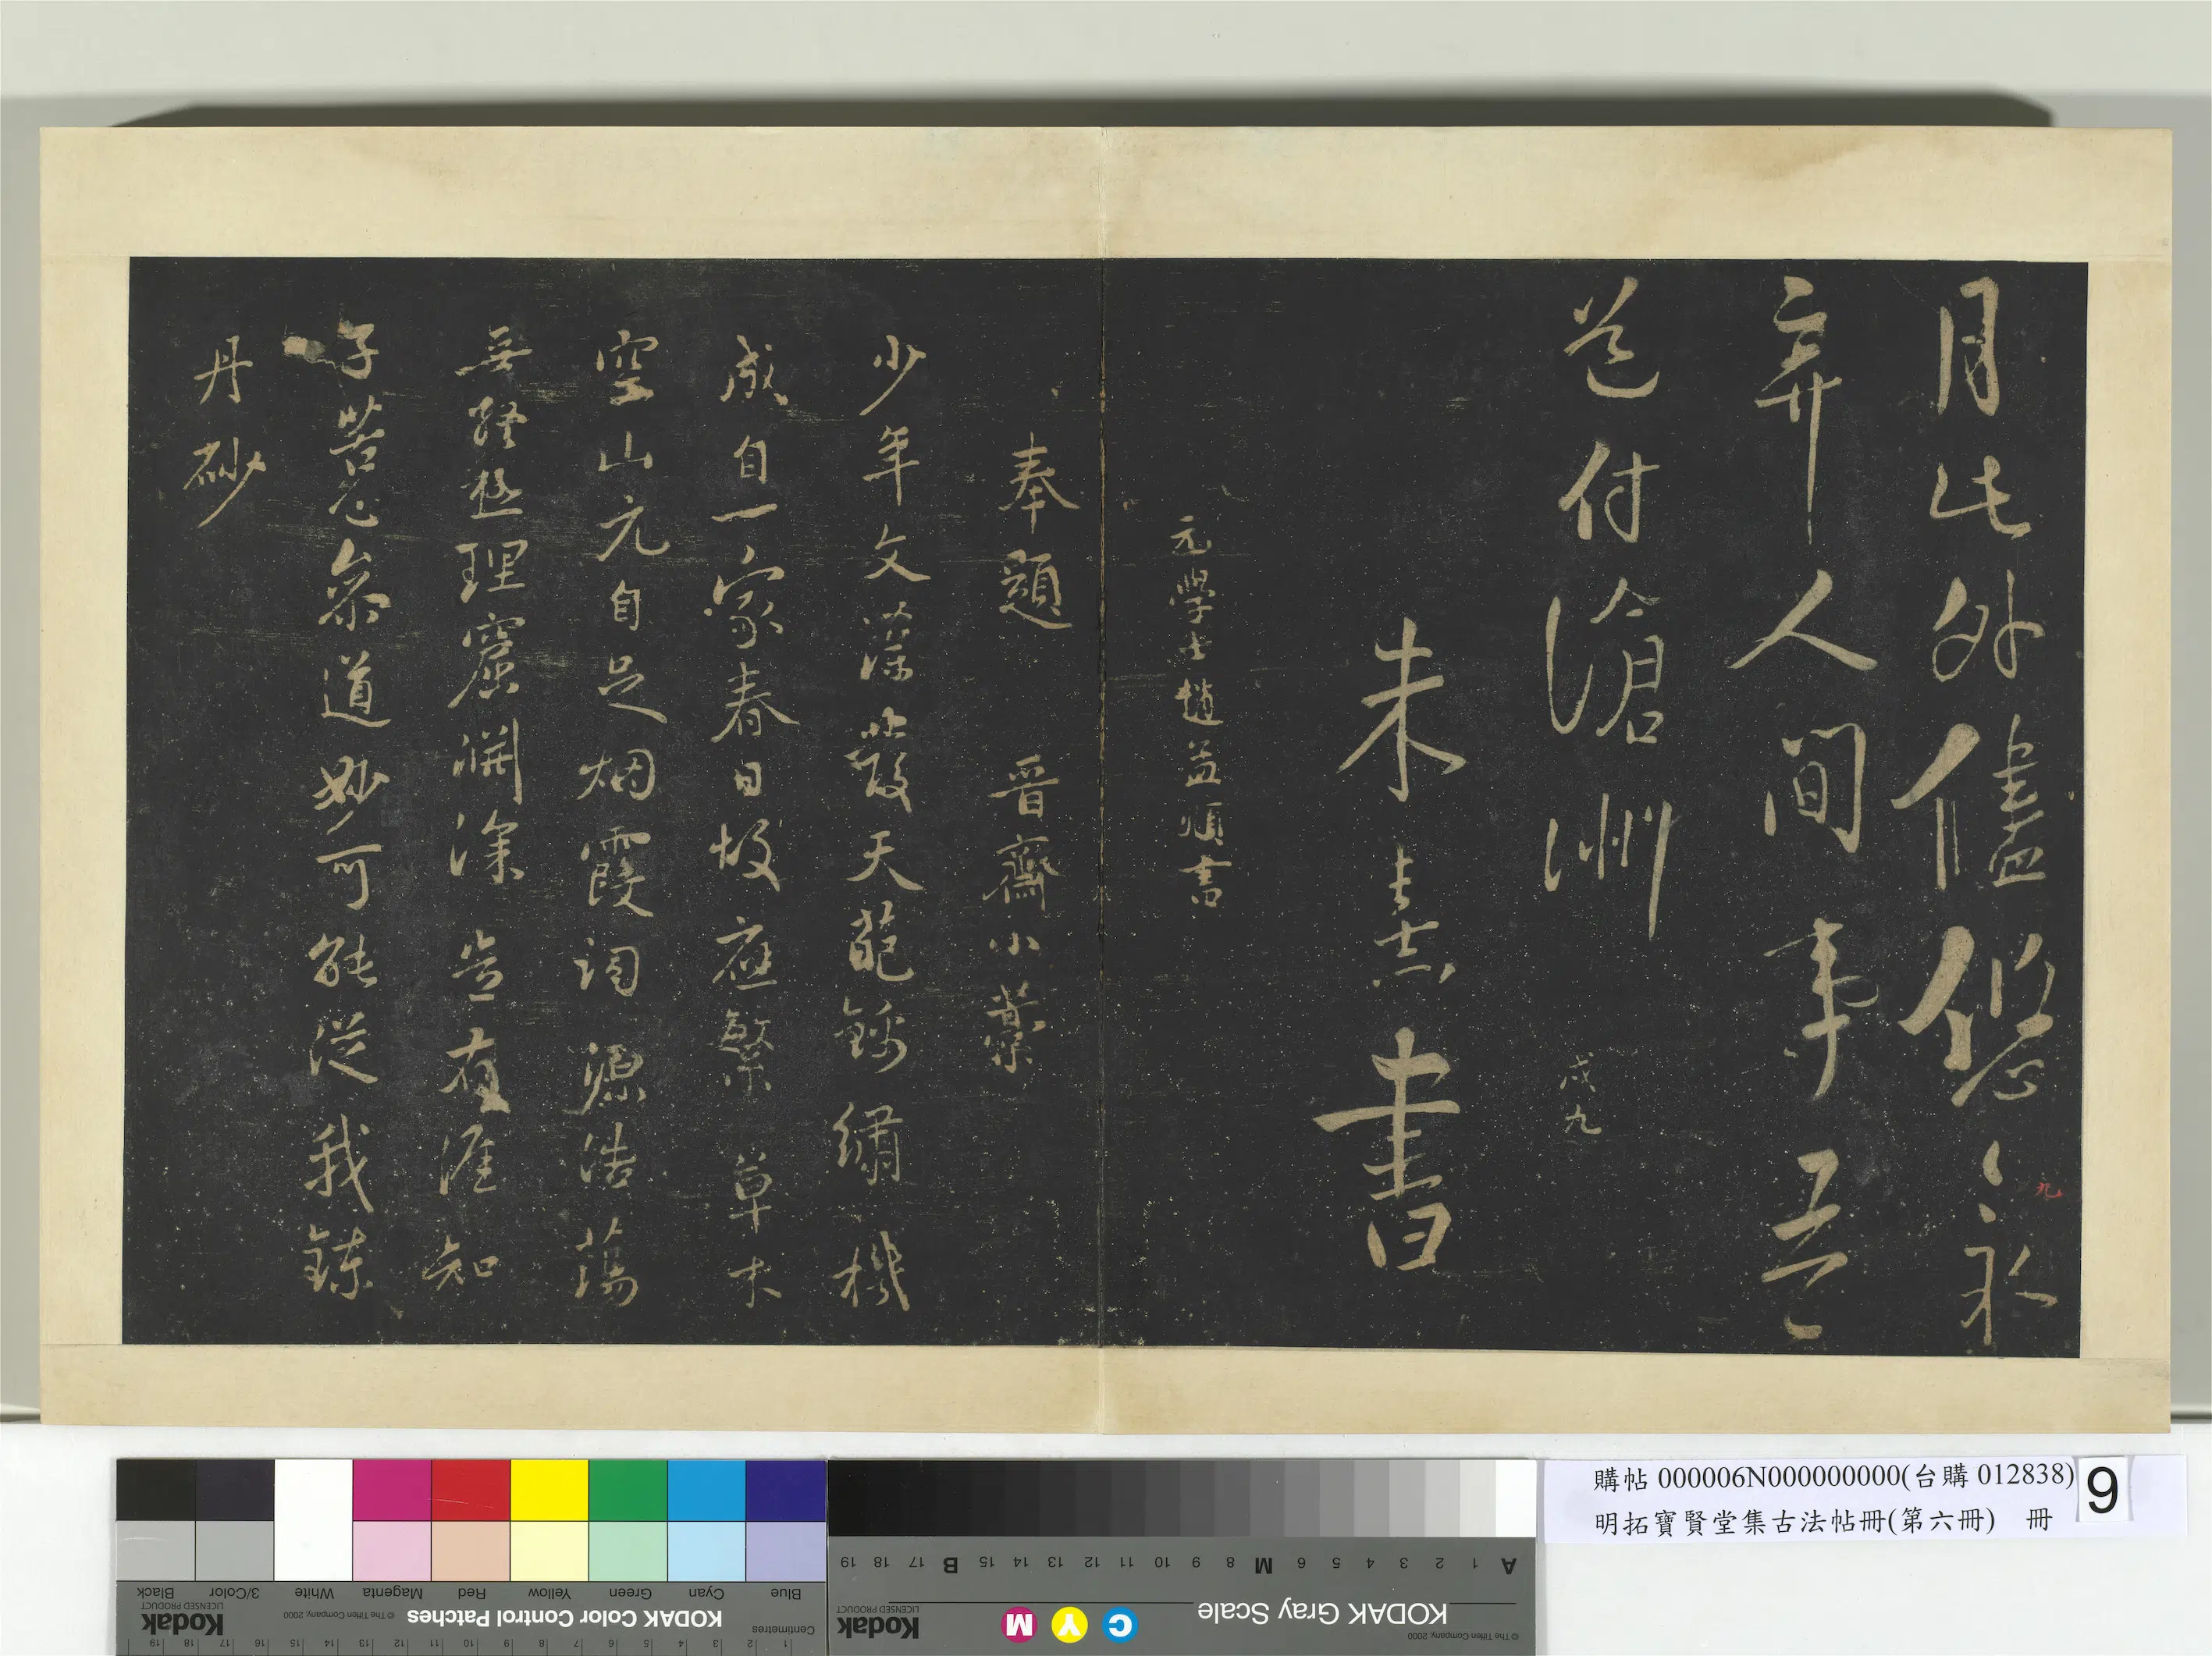 月此外儘悠〻永
弃人間事吾
道付滄洲
戌九
九
朱熹書
元學士趙孟頫書
奉題 晉齋小藁
少年文藻發天葩錦繡機
成自一家春日坡應繁草木
空山元自足烟霞詞源浩蕩
無終極理窟淵深豈有涯知
子苦心參道妙可能從我鍊
丹砂
購帖 000006N000000000(台購 012838)
明拓寶賢堂集古法帖冊(第六冊) 冊
9
Blue Cyan Green Yellow Red Magenta White 3/Color Black
KODAK Color Control Patches
© The Tiffen Company, 2000
Kodak
LICENSED PRODUCT
Centimetres
1 2 3 4 5 6 7 8 9 10 11 12 13 14 15 16 17 18 19
A 1 2 3 4 5 6 M 8 9 10 11 12 13 14 15 B 17 18 19
KODAK Gray Scale
C Y M
Kodak
LICENSED PRODUCT
© The Tiffen Company, 2000